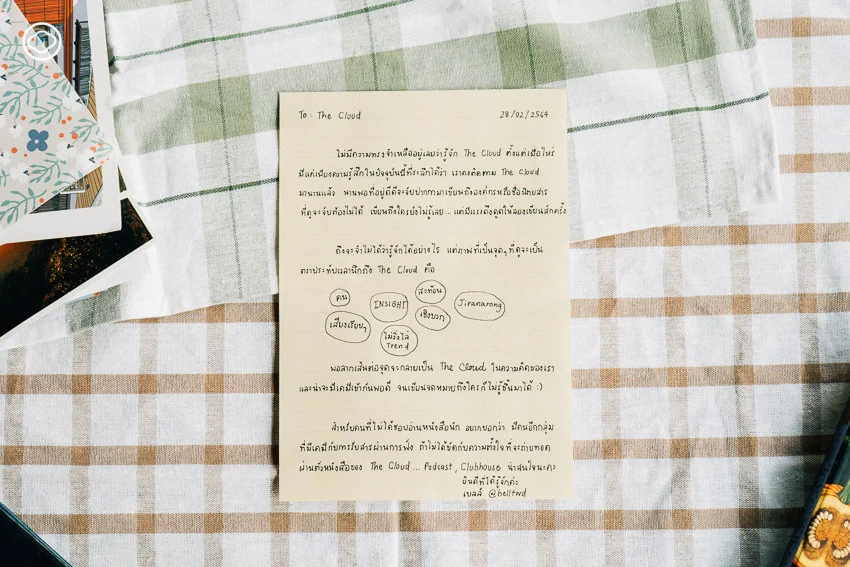 To : The Cloud
28/02/2564
ไม่มีความทรงจำเหลืออยู่เลยว่ารู้จัก The Cloud ตั้งแต่เมื่อไหร่
มีแต่เพียงความรู้สึกในปัจจุบันนี้ที่ระลึกได้ว่า เราคงติดตาม The Cloud
มานานแล้ว นานพอที่อยู่ดีดีจะจับปากกามาเขียนถึงองค์กรหรือชื่อนิตยสาร
ที่ดูจะจับต้องไม่ได้ เขียนถึงใครยังไม่รู้เลย... แต่มีแรงดึงดูดให้ลองเขียนสักครั้ง
ถึงจะจำไม่ได้ว่ารู้จักได้อย่างไร แต่ภาพที่เป็นจุดๆ ที่ดูจะเป็น
ตราประทับเวลานึกถึง The Cloud คือ
คน
INSIGHT
สะท้อน
Jiranarong
เสียงเงียบๆ
เชิงบวก
ไม่วิ่งไล่
Trend
พอลากเส้นต่อจุดจะกลายเป็น The Cloud ในความคิดของเรา
และน่าจะมีเคมีเข้ากันพอดี จนเขียนจดหมายถึงใครก็ไม่รู้ขึ้นมาได้ :)
สำหรับคนที่ไม่ได้ชอบอ่านหนังสือนัก อยากบอกว่า มีคนอีกกลุ่ม
ที่มีเคมีกับการรับสารผ่านการฟัง ถ้าไม่ได้ขัดกับความตั้งใจที่จะถ่ายทอด
ผ่านตัวหนังสือของ The Cloud... Podcast, Clubhouse น่าสนใจนะคะ
ยินดีที่ได้รู้จักค่ะ
เบลล์ @belltwd